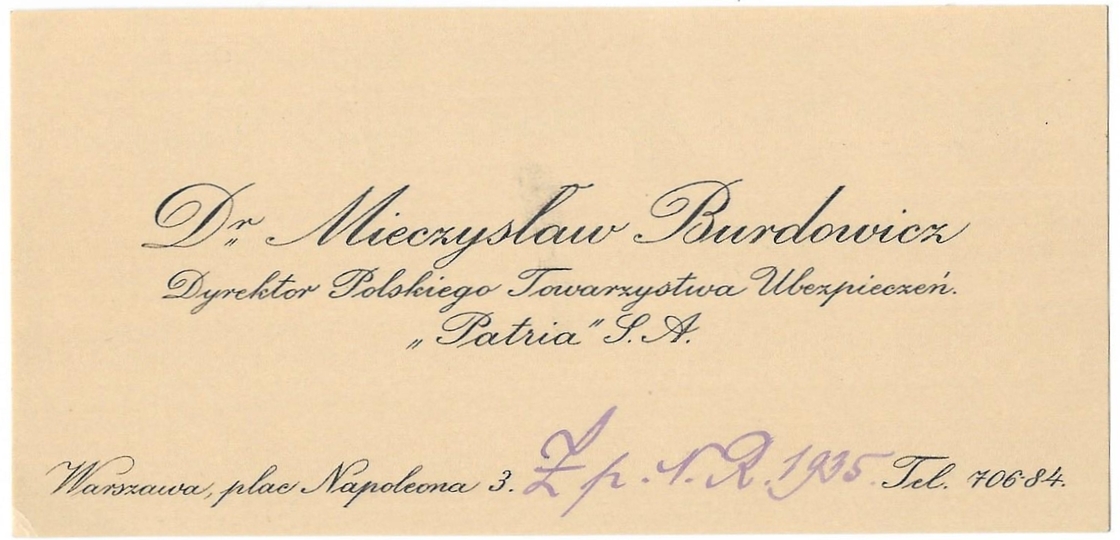 Dr. Mieczysław Burdowicz
Dyrektor Polskiego Towarzystwa Ubezpieczeń.
„Patria” S. A.
Warszawa, plac Napoleona 3. Ż p. N. R. 1935. Tel. 706-84.